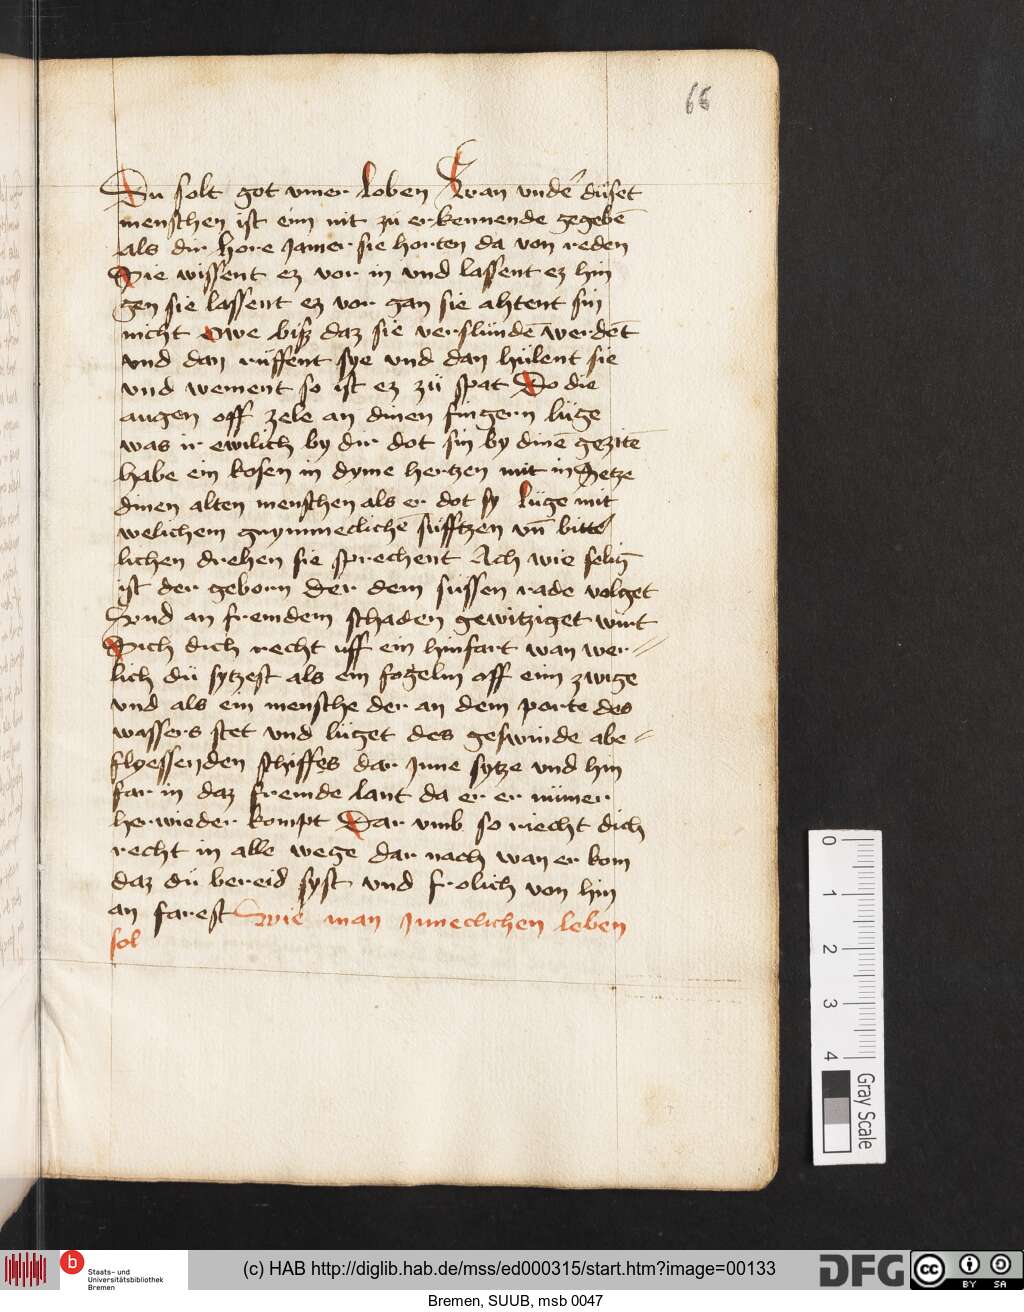 66
Du solt got vmer loben Wan vnde düset
menschen ist eim nit zü erkennende gegebē
als dir hore Jamer sie horten da von reden
Sie wissent ez vor in vnd lassent ez hin
gen sie lassent ez vor gan sie ahtent sin
nicht Owe bisz daz sie verslündē werdēt
vnd dan rüffent sye vnd dan hülent sie
vnd wement so ist ez zü spat Do die
augen off zele an dinen fingern lüge
was ir ewilich by dir dot sin by dinē gezitē
habe ein kosen in dyme hertzen mit in Setze
dinen alten menschen als er dot sy lüge mit
welichem süfftzen vn̄ bitte
lichen drehen sie sprechent Ach wie selig
ist der geborn der dem süssen rade volget
Vnd an fremdem schaden gewitziget wirt
Sich dich recht uff ein hinfart wan wer=
lich dü sytzest als ein fogelin off eim zwige
vnd als ein mensche der an dem porte des
wassers stet vnd lüget des geswinde abe=
flyessenden schiffes dar Jnne sytze vnd hin
far in daz fremde lant da er er nümer
herwieder kompt Dar vmb so riecht dich
recht in alle wege dar nach wan er kom
daz dü bereid syst vnd frolich von hin
an farest Wie man Jnneclichen leben
sol
0
1
2
3
4
Gray Scale
b
Staats- und
Universitätsbibliothek
Bremen
(c) HAB http://diglib.hab.de/mss/ed000315/start.htm?image=00133
DFG
cc BY SA
Bremen, SUUB, msb 0047